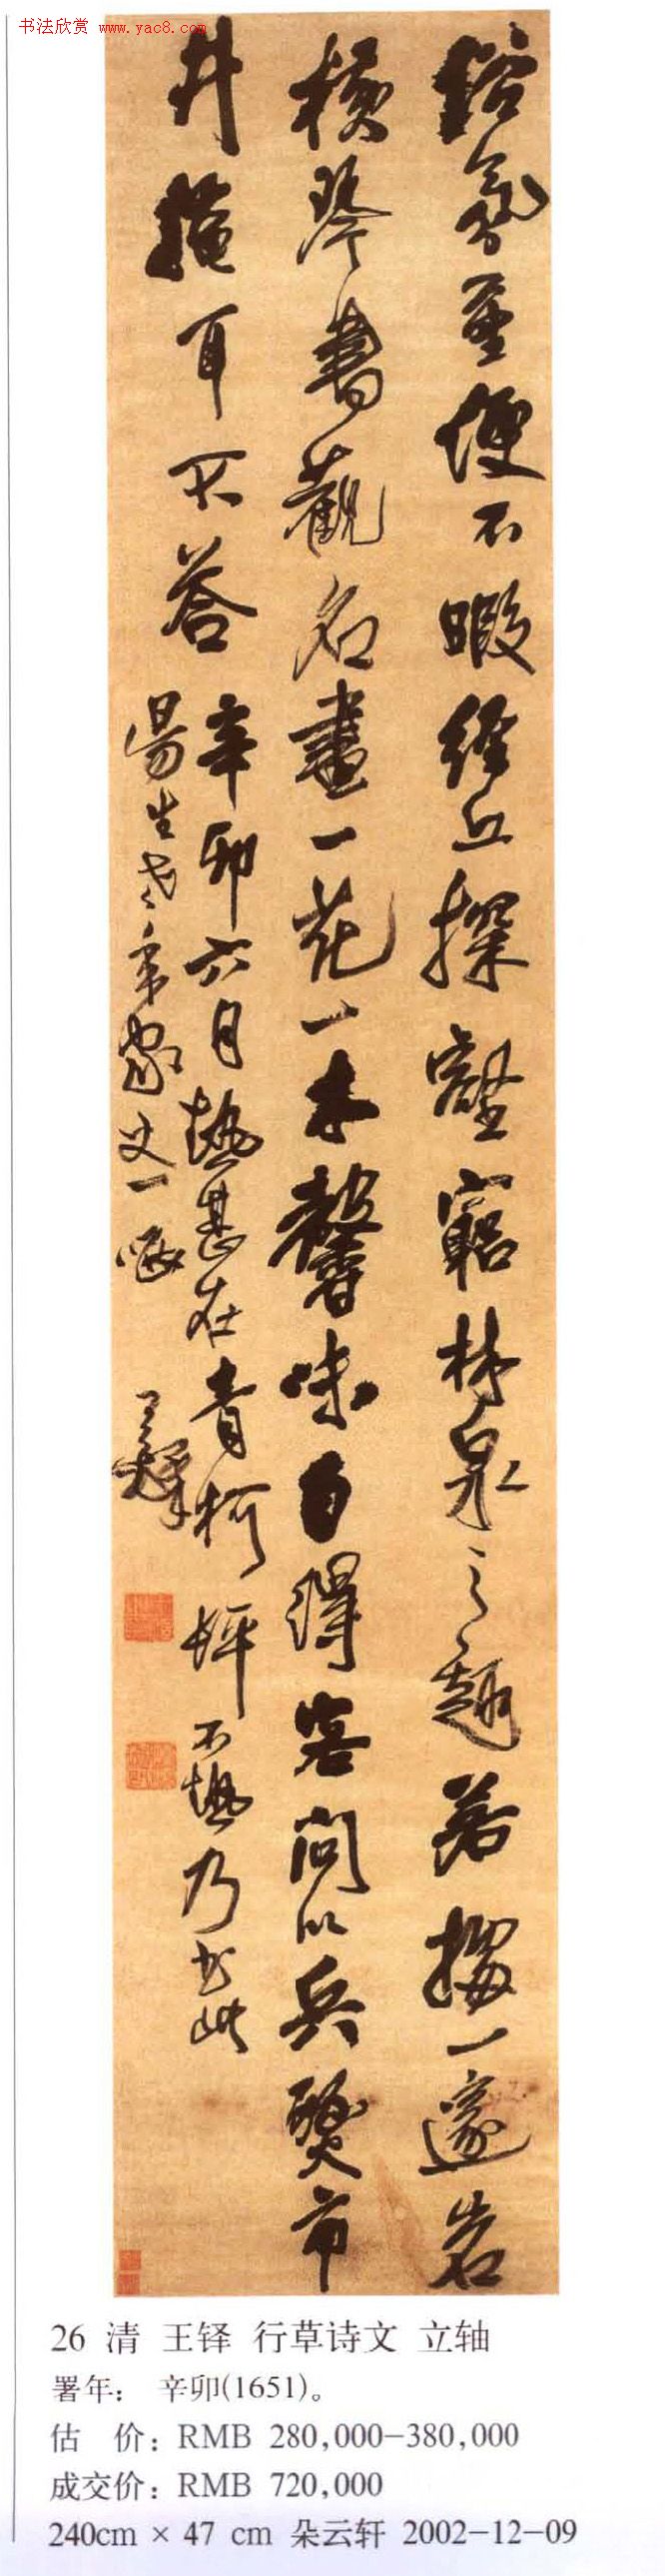 书法欣赏 www.yac8.com
氛至便不暇经丘探壑穷林泉之趣若攝一邃岩
横琴書觀名畫一花一木馨味自得客問以兵燹市
井掩耳不答
辛卯六月热甚在青柯坪不热乃书此
湯生老年家丈一噱
王鐸
26 清 王铎 行草诗文 立轴
署年： 辛卯(1651)。
估 价：RMB 280,000-380,000
成交价：RMB 720,000
240cm × 47 cm 朵云轩 2002-12-09